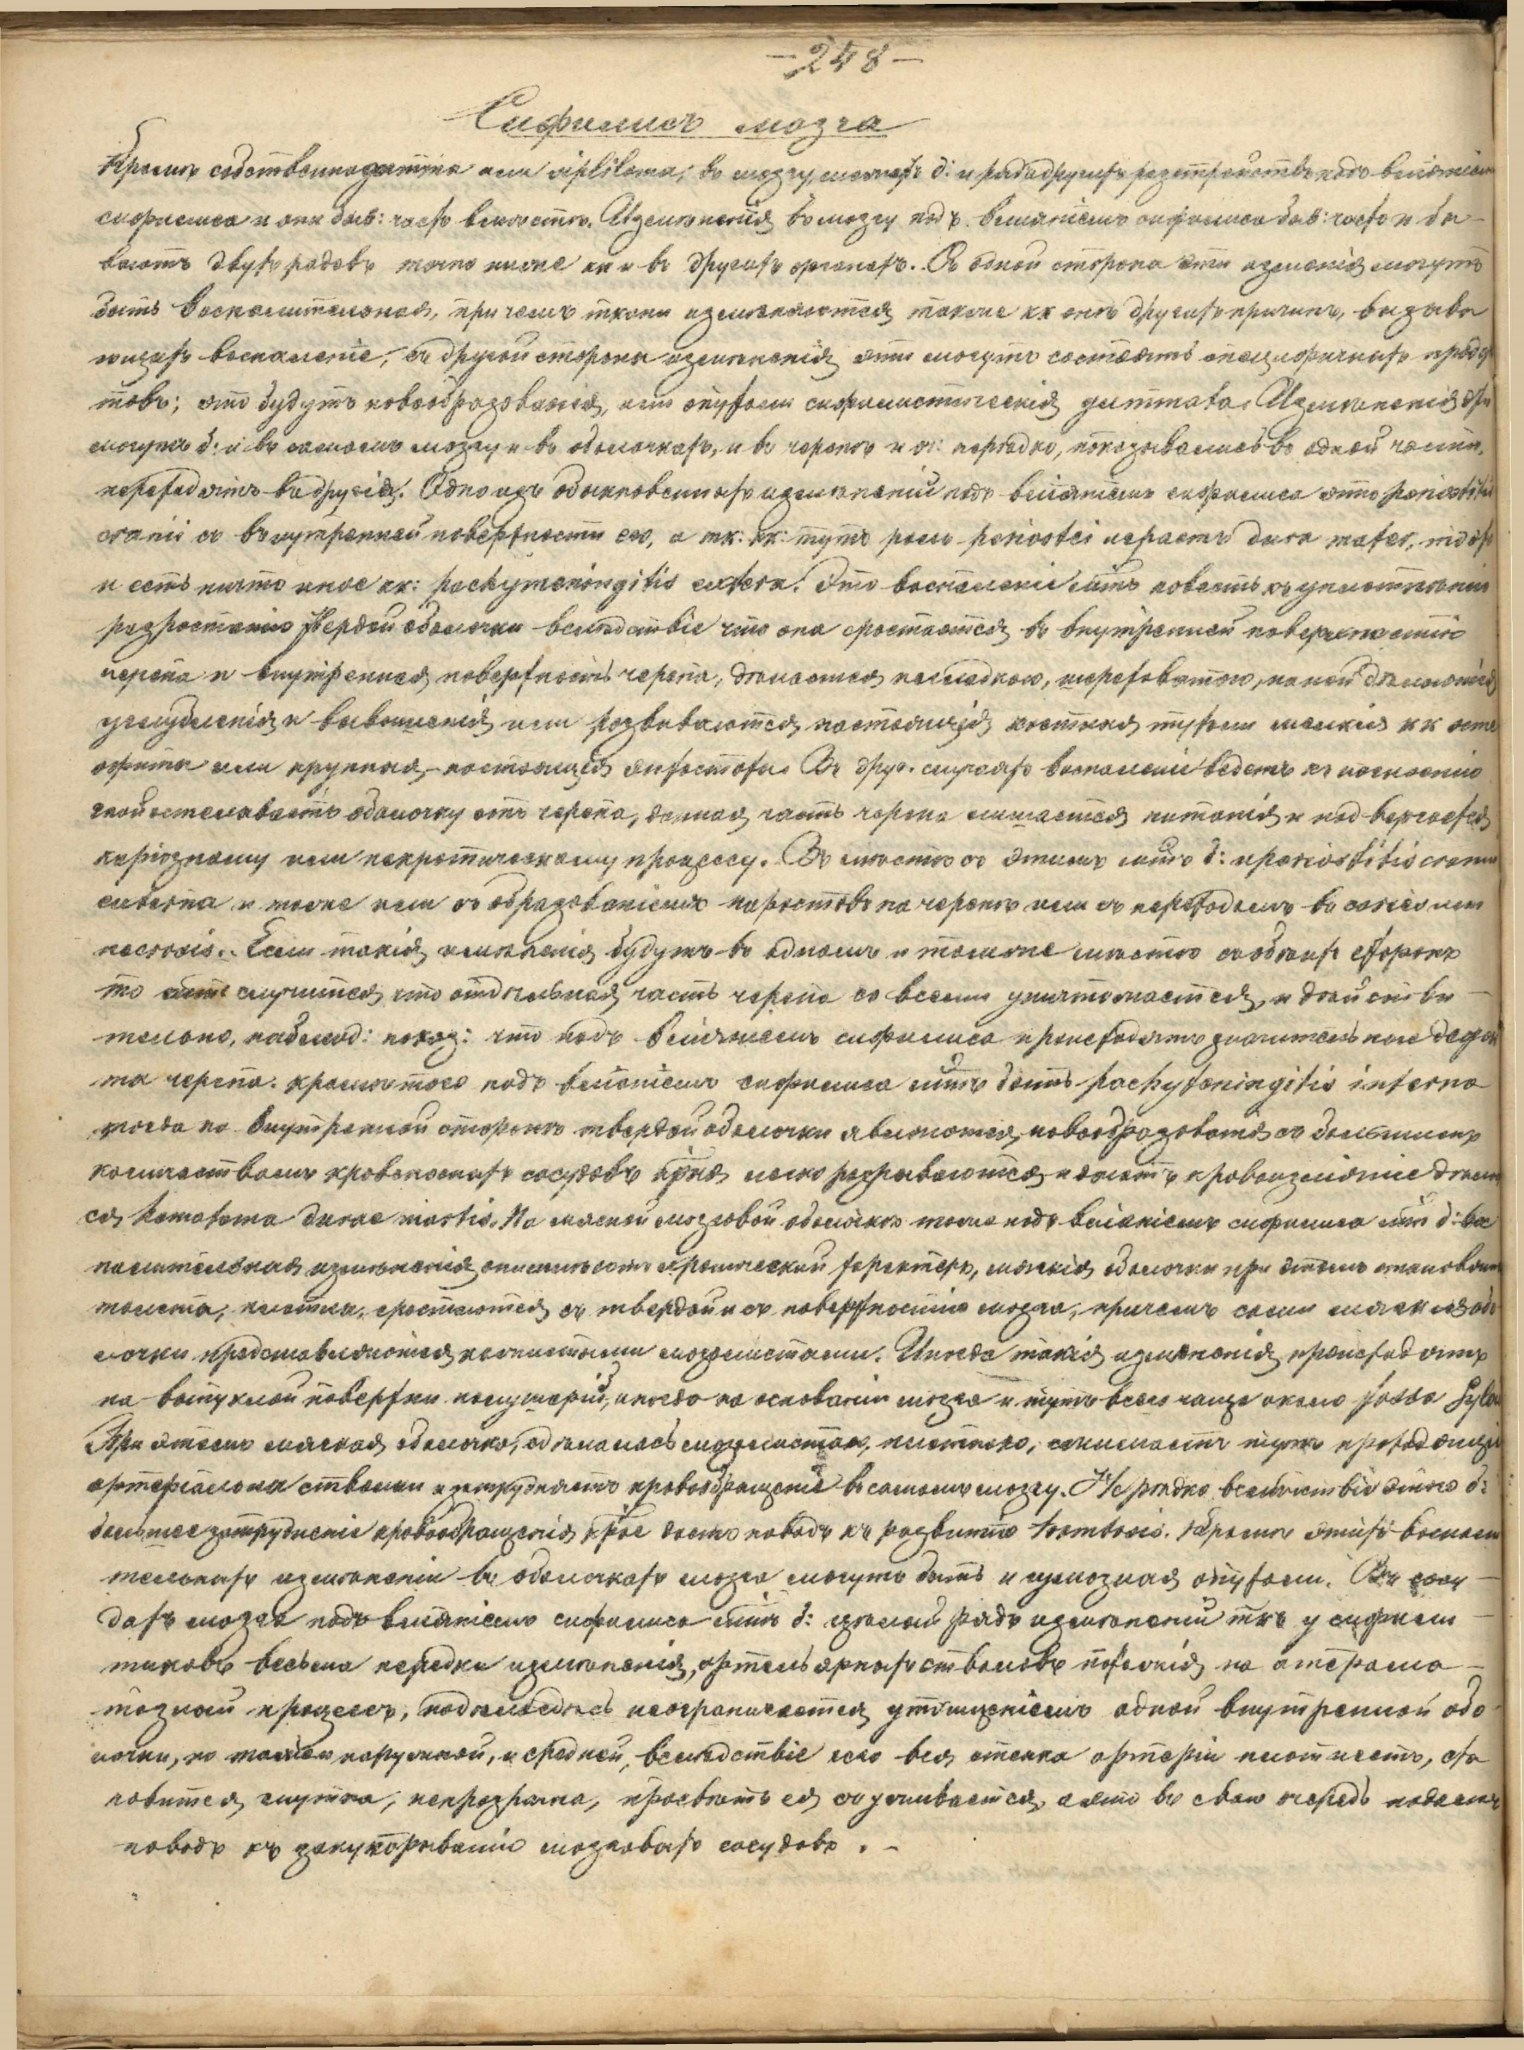 -248-
Сифилисъ мозга
Кромѣ собственно gumma или siphiloma, въ мозгу можетъ б: и рядъ другихъ разстройствъ подъ вліяніемъ
сифилиса и они быв: часто вмѣстѣ. Измѣненія въ мозгу подъ вліяніемъ сифилиса быв: часто и бы-
ваютъ двухъ родовъ точно также кк и въ другихъ органахъ. Съ одной стороны эти измѣненія могутъ
быть воспалительныя, при чемъ ткани измѣняются также кк отъ другихъ причинъ, вызыва
ющихъ воспаленіе, съ другой стороны измѣненія эти могутъ составлять специфичныхъ продук
товъ; это будутъ новообразованія, или опухоли сифилистическія gummata. Измѣненія эти
могутъ б: и въ самомъ мозгу и въ оболочкахъ, и въ черепѣ и оч: нерѣдко, показываясь въ одной части,
переходятъ въ другія. Одно изъ обыкновенныхъ измѣненій подъ вліяніемъ сифилиса это periostitis
cranii съ внутренней поверхности его, а тк: кк: тутъ роль periostei играетъ dura mater, то это
и есть ничто иное кк: pachymeningitis externa. Это воспаленіе мѣтъ поведетъ къ уплотненію
разростанію твердой оболочки вслѣдствіе что она сростается съ внутренней поверхностію
черепа и внутренняя поверхность черепа, дѣлается негладкою, шероховатою, на ней дѣлаются
углубленія и возвышенія или развиваются настоящія костныя опухоли мелкія кк осте
офиты или крупныя, настоящія экзостозы. Въ друг. случаяхъ воспаленіе ведетъ къ нагноенію
гной отслаиваетъ оболочку отъ черепа, данная часть черепа лишается питанія и подвергается
каріозному или некротическому процессу. Въ мѣстѣ съ этимъ мѣтъ б: и periostitis cranii
externa и также или съ образованіемъ наростовъ на черепѣ или съ переходомъ въ caries или
necrosis. Если такія измѣненія будутъ въ одномъ и томже мѣстѣ съ обѣихъ сторонъ
то мѣтъ случится что отдѣльная часть черепа со всѣмъ уничтожается, и дѣйстви-
тельно, наблюд: показ: что подъ вліяніемъ сифилиса происходятъ значительные дефек
ты черепа. Кромѣ того подъ вліяніемъ сифилиса мѣтъ быть pachymeningitis interna
тогда на внутренней сторонѣ твердой оболочки являются новообразованія съ большимъ
количествомъ кровеносныхъ сосудовъ крыя легко разрываются и даютъ кровоизліяніе дѣлает
ся hematoma durae matris. На мягкой мозговой оболочкѣ тоже подъ вліяніемъ сифилиса мѣтъ б: вос
палительныя измѣненія имѣютъ хроническій характеръ, мягкія оболочки при этомъ становятся
толсты, плотны, сростаются съ твердой и съ поверхностію мозга, причемъ сами мягкія обо
лочки представляются мозолистыми. Иногда такія измѣненія происходятъ
на выпуклой поверхни полушарій, иногда на основаніи мозга и тутъ всего чаще около fossa Sylvii
При этомъ мягкая оболочка, сдѣлалась мозолистою, плотною, сжимаетъ тутъ проходящіе
артеріальны стволы и затрудняетъ кровообращеніе въ самомъ мозгу. Не рѣдко вслѣдствіе этого б:
большее затрудненіе кровообращенія крое даетъ поводъ къ развитію trombosis. Кромѣ этихъ воспали
тельныхъ измѣненій въ оболочкахъ мозга могутъ быть и гумозныя опухоли. Въ сосу-
дахъ мозга подъ вліяніемъ сифилиса мѣтъ б: цѣлый рядъ измѣненій ткъ у сифили-
тиковъ весьма нерѣдки измѣненія артеріярныхъ стволовъ похожія на атерома-
тозный процессъ, неограничивается утолщеніемъ одной внутренней обо
лочки, но также наружной, и средней, вслѣдствіе чего вся стѣнка артеріи плотнѣетъ, ста
новится мутна, непрозрачна, просвѣтъ ея суживается, а это въ свою очередь подаетъ
поводъ къ закупориванію мозговыхъ сосудовъ. -